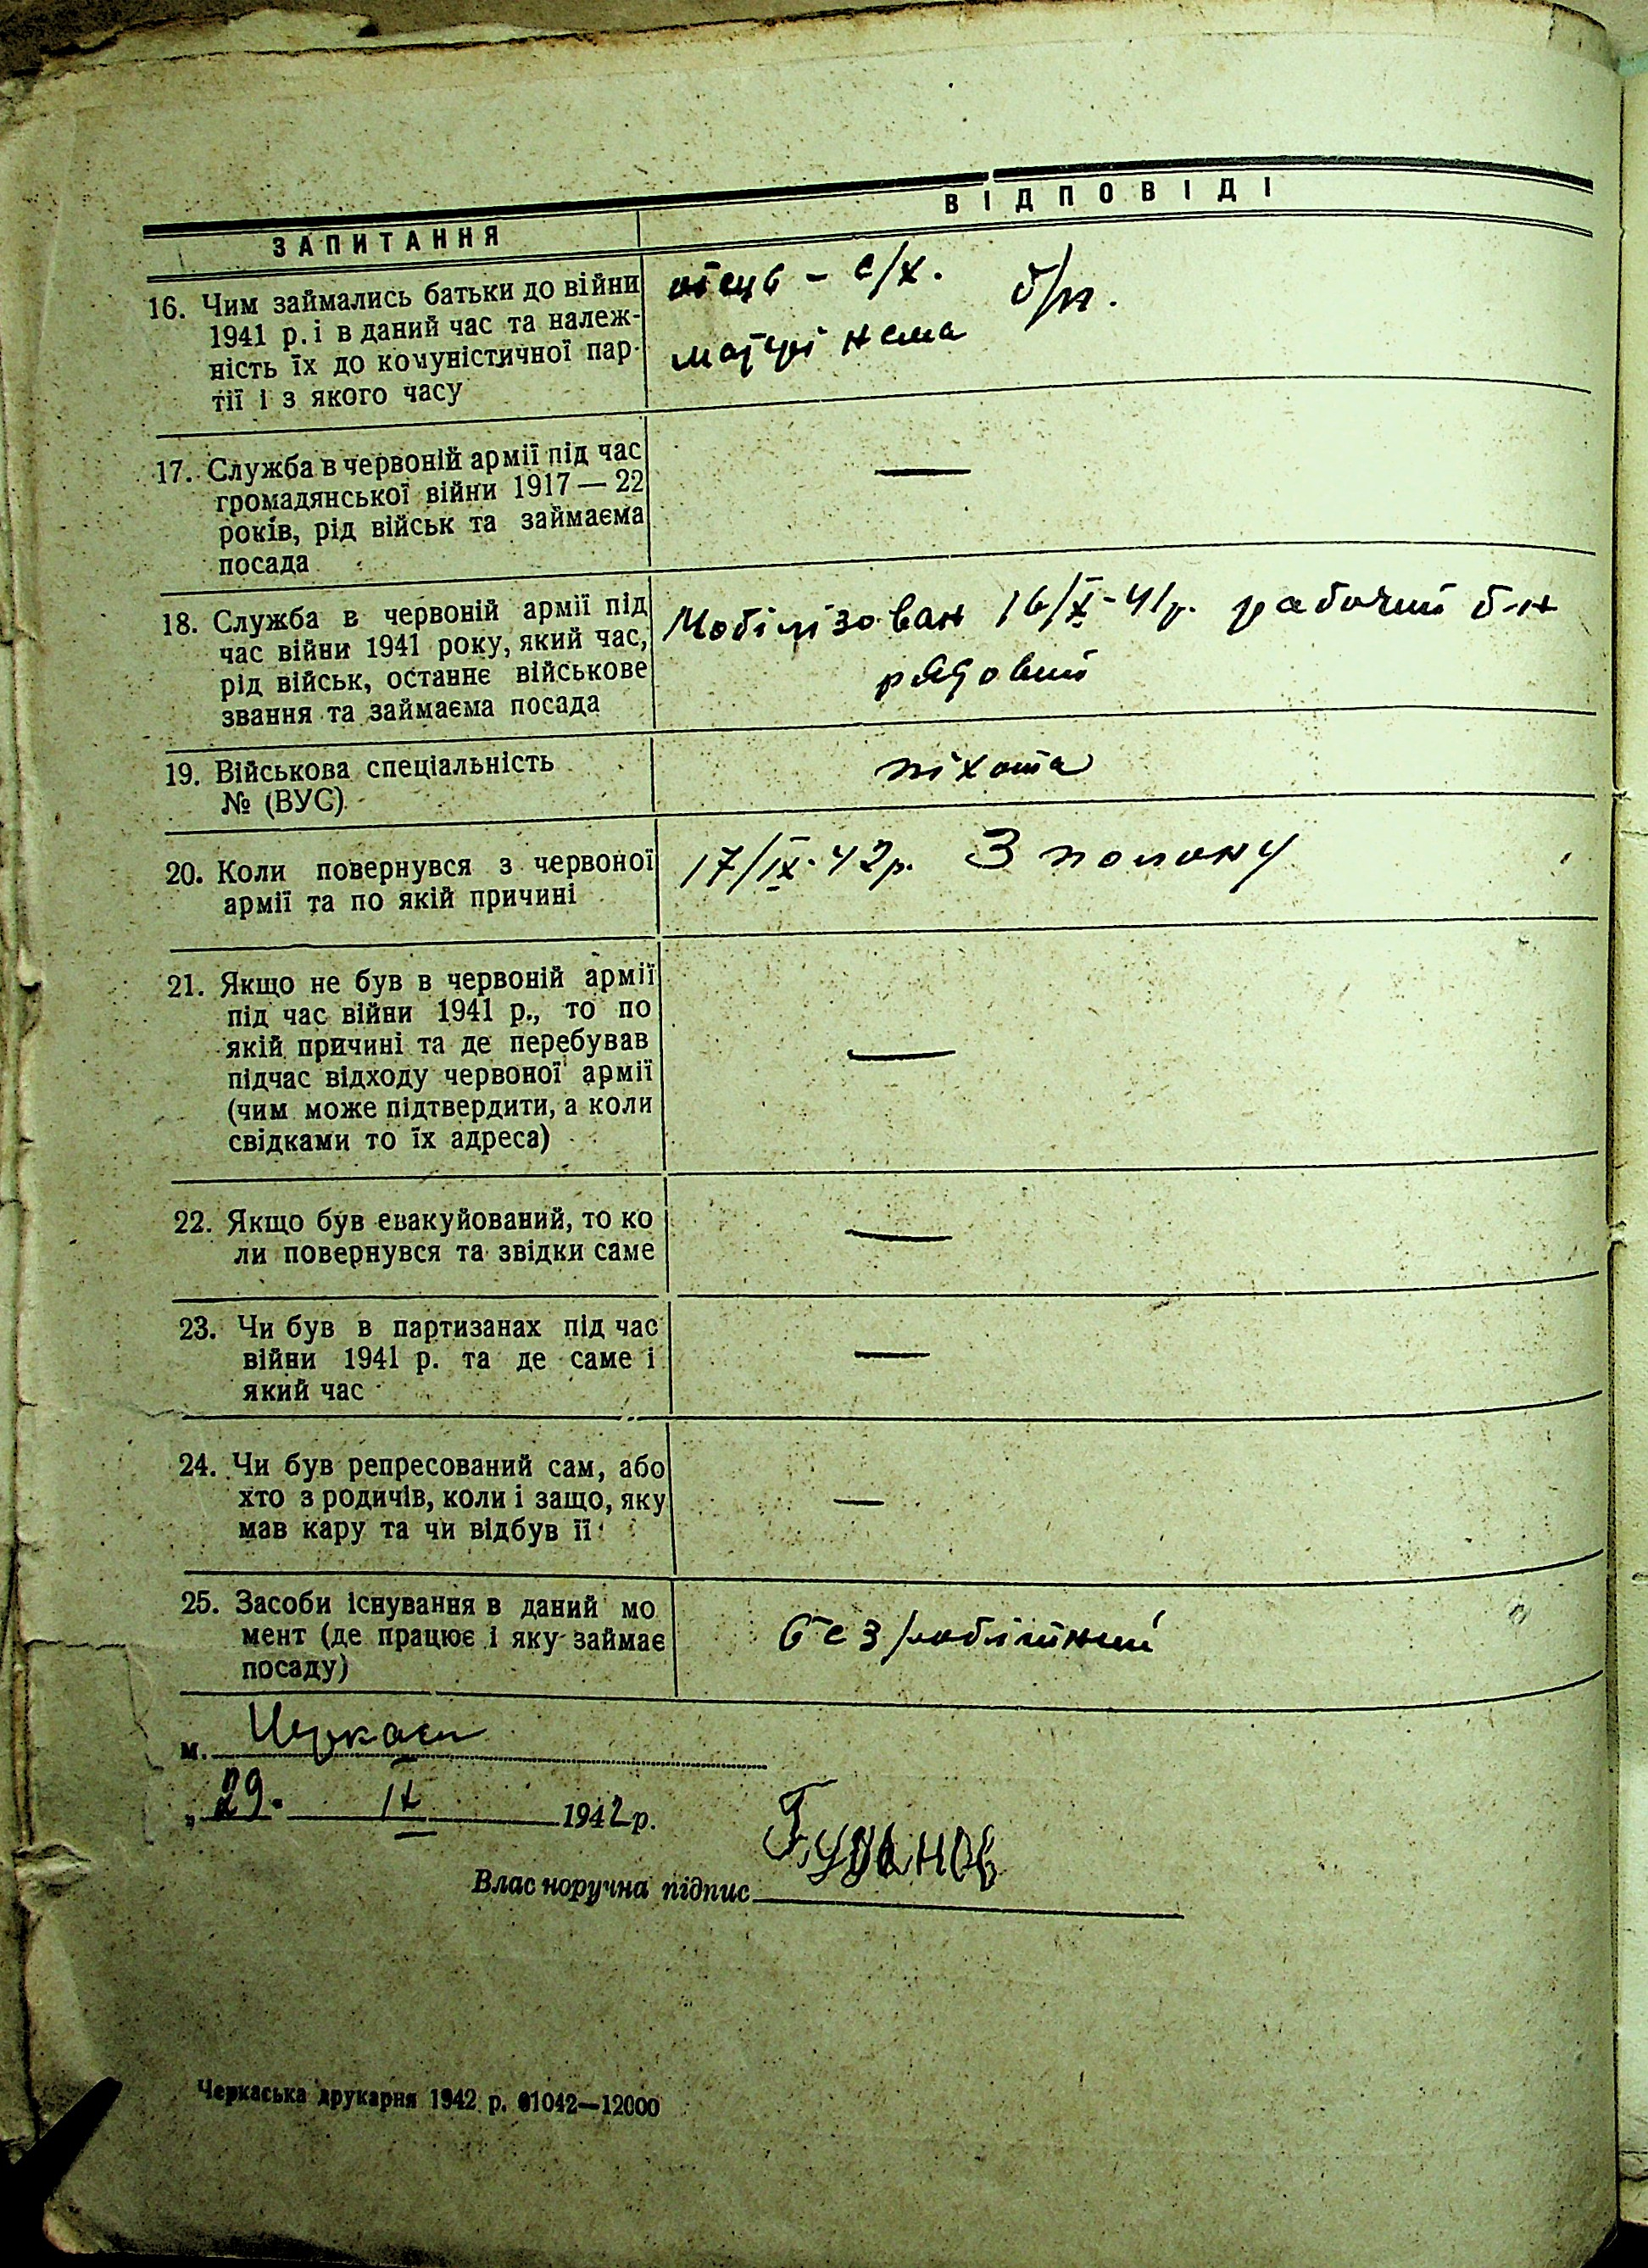 ЗАПИТАННЯ
ВІДПОВІДІ
16. Чим займались батьки до війни
1941 р. і в даний час та належ-
ність їх до комуністичної пар-
тії і з якого часу
отець – с/х. б/п.
матері нема
17. Служба в червоній армії під час
громадянської війни 1917 — 22
років, рід військ та займаєма
посада
—
18. Служба в червоній армії під
час війни 1941 року, який час,
рід військ, останнє військове
звання та займаєма посада
Мобілізован 16/X-41р. рабочий б-н
рядовий
19. Військова спеціальність
№ (ВУС)
піхота
20. Коли повернувся з червоної
армії та по якій причині
17/IX-42р. З полону
21. Якщо не був в червоній армії
під час війни 1941 р., то по
якій причині та де перебував
підчас відходу червоної армії
(чим може підтвердити, а коли
свідками то їх адреса)
—
22. Якщо був евакуйований, то ко
ли повернувся та звідки саме
—
23. Чи був в партизанах під час
війни 1941 р. та де саме і
який час
—
24. Чи був репресований сам, або
хто з родичів, коли і защо, яку
мав кару та чи відбув її
—
25. Засоби існування в даний мо
мент (де працює і яку займає
посаду)
безробітний
м. Черкаси
„ 29. IX 1942 р.
Власноручна підпис
Черкаська друкарня 1942 р. 01042—12000